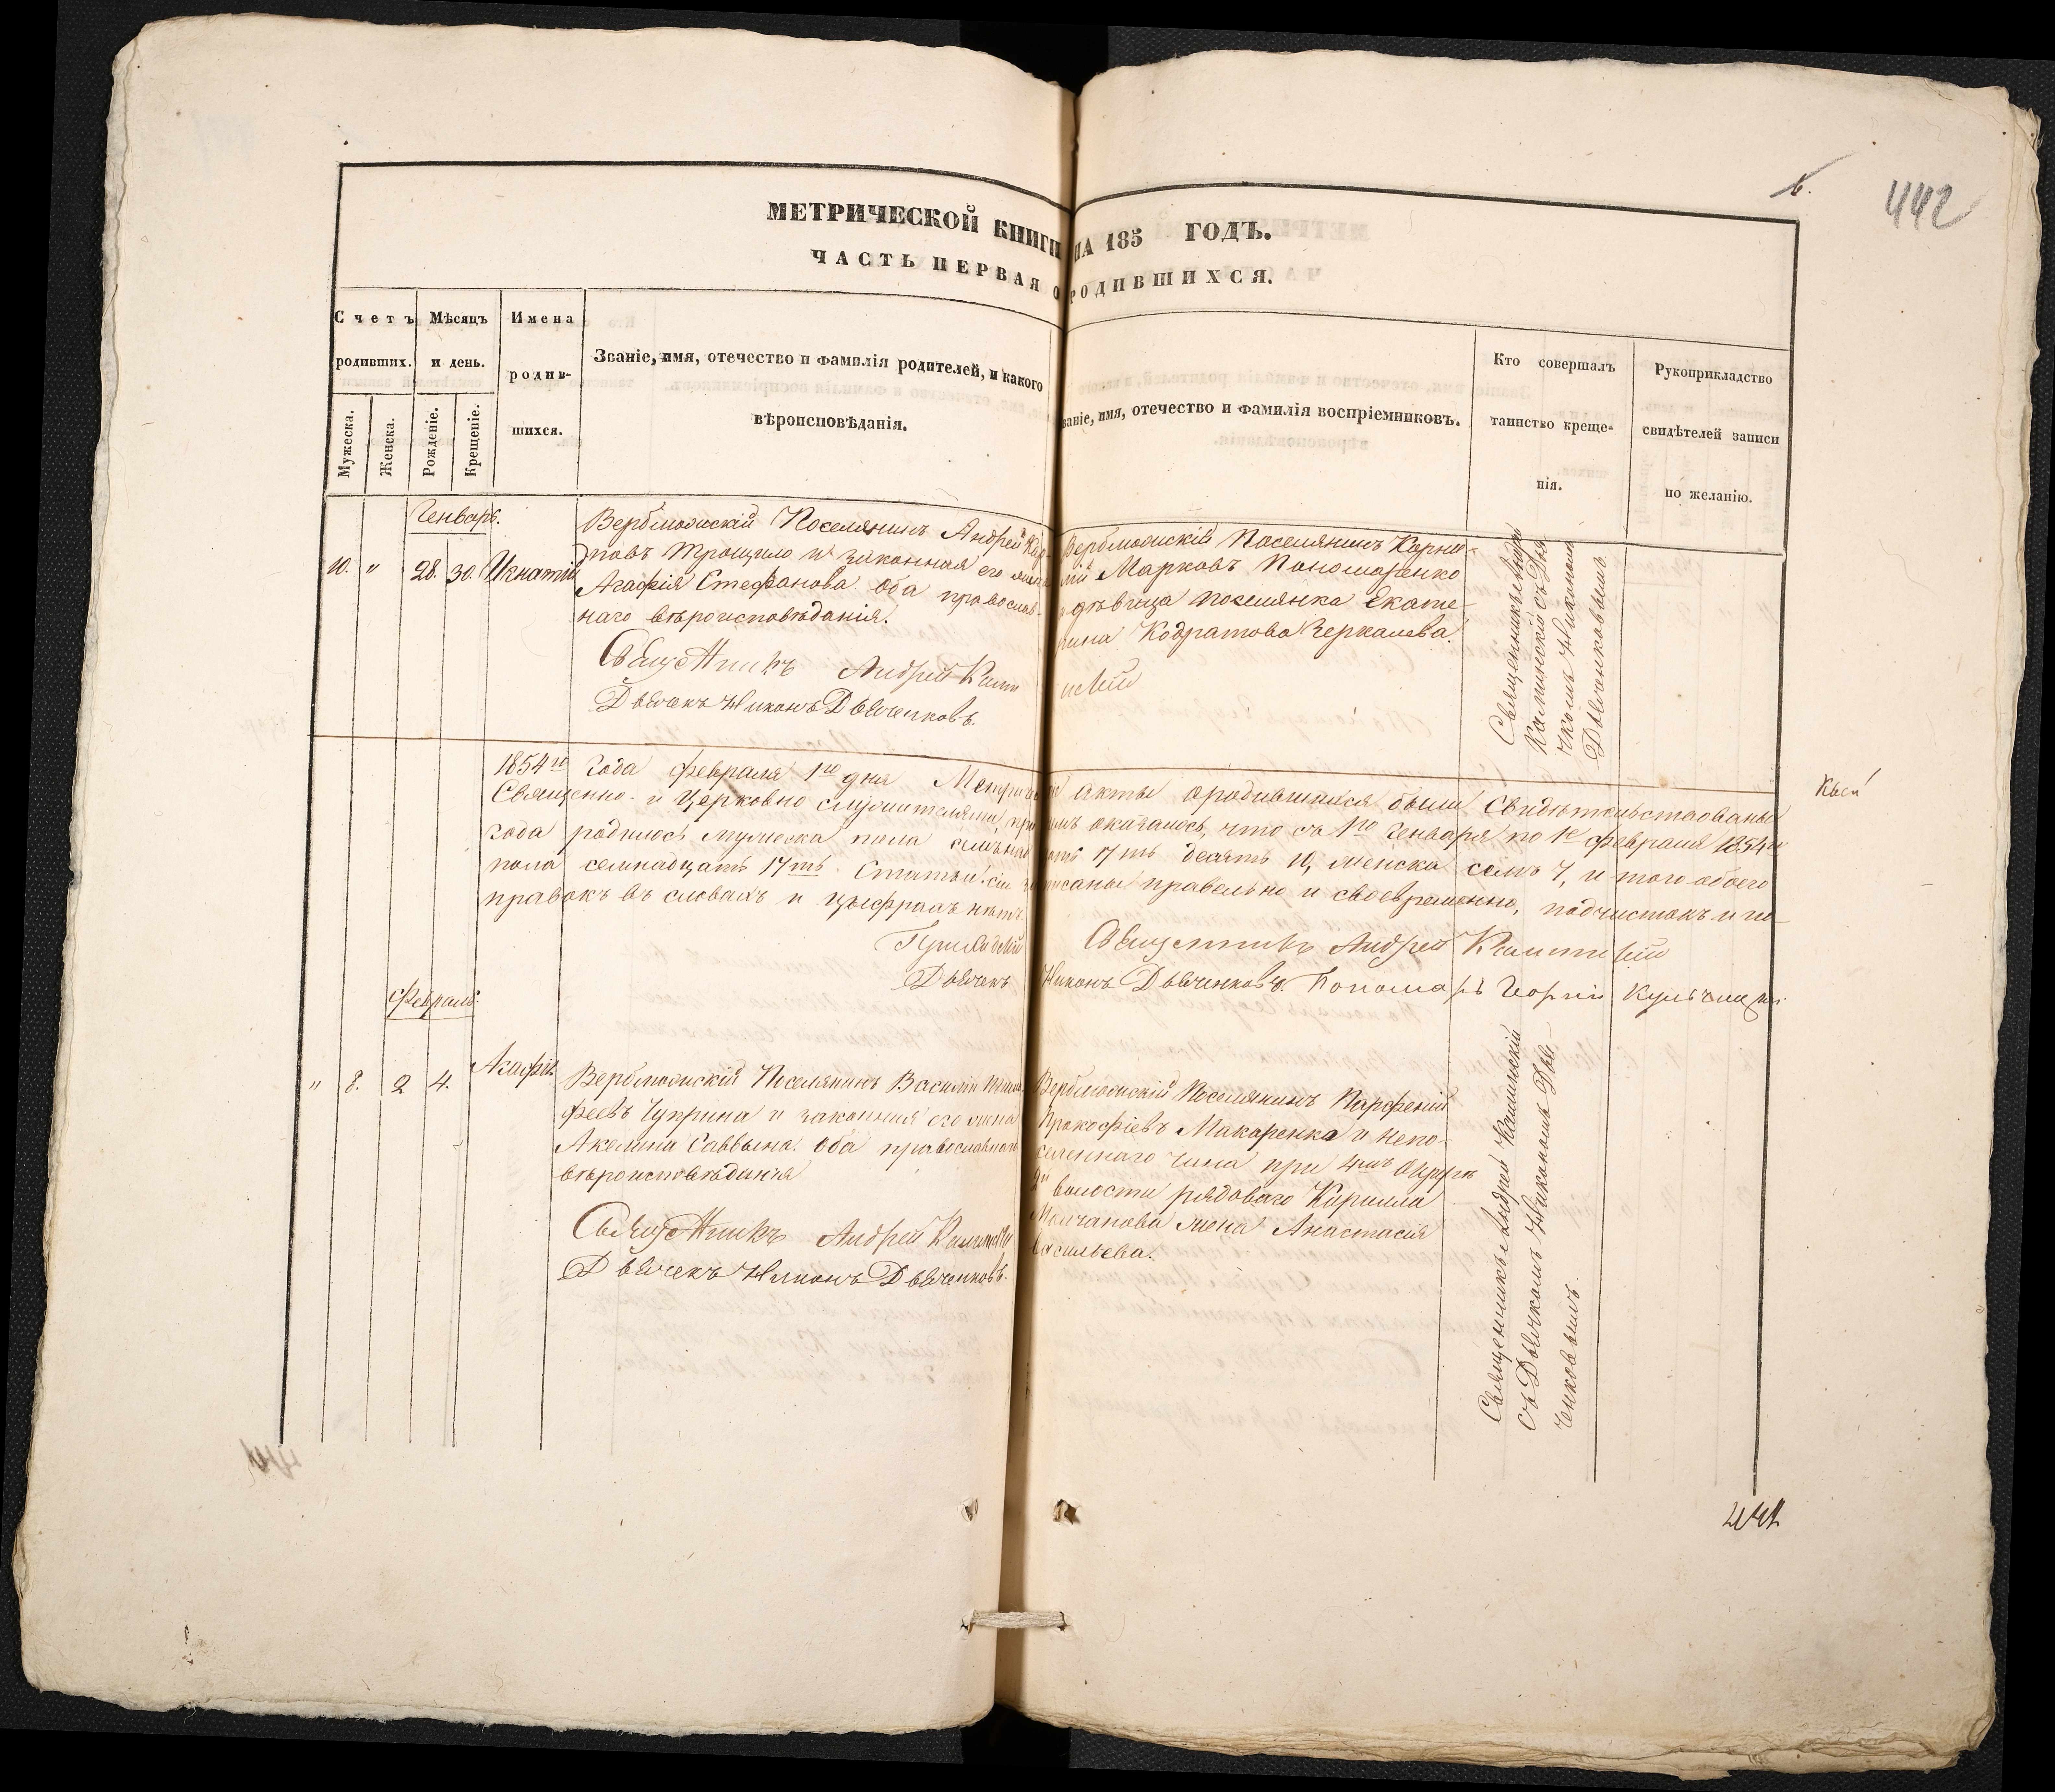 442
МЕТРИЧЕСКОЙ КНИГИ НА 185 ГОДЪ.
ЧАСТЬ ПЕРВАЯ О РОДИВШИХСЯ.
Счетъ родивших.
Мужеска.
Женска.
Мѣсяцъ и день.
Рожденіе.
Крещеніе.
Имена родив-
шихся.
Званіе, имя, отечество и фамилія родителей, и какого
вѣроисповѣданія.
званіе, имя, отечество и фамилія воспріемниковъ.
Кто совершалъ
таинство креще-
нія.
Рукоприкладство
свидѣтелей записи
по желанію.
Генварь.
10. " 28. 30. Игнатій
Верблюжскій Поселянинъ Андрей
повъ Трощило и законная его
Агафія Стефанова оба православ-
наго вѣроисповѣданія.
Священникъ Андрей Камин
Дьячекъ Никонъ Дьяченковъ.
Верблюжскій Поселянинъ Корни-
лій Марковъ Пономаренко
и дѣвица поселянка Екате-
рина Кодратова Зеркалева.
нскій
Священникъ Андрей
Каминскій съ Дья
чкомъ Никономъ
Дьяченковымъ
1854го года февраля 1го дня Метрическія акты о родившихся были свидѣтельствованы
Священно- и Церковно служителями, при чемъ оказалось, что съ 1го Генваря по 1е февраля 1854го
года родилось мужеска пола десять 10, женска семь 7, и того обоего
пола семнадцать 17ть. Статьи сіи записаны правельно и своевременно, подчистокъ и по-
правокъ въ словахъ и цыфрахъ нѣтъ.
Священникъ Андрей Каминскій
Дьячекъ Никонъ Дьяченковъ. Пономарь Георгій
Февраль.
" 8. 2 4. Агафія
Верблюжскій Поселянинъ Василій
феевъ Чуприна и законная его жена
Акелина Саввына. оба православнаго
вѣроисповѣданія
Священникъ Андрей Каминскій
Дьячекъ Никонъ Дьяченковъ.
Верблюжскій Поселянинъ Парфеній
Прокофіевъ Макаренко и непо-
селеннаго чина при 4мъ Округѣ
2й волости рядоваго Кирилла
Молчанова жена Анастасія
Васильева.
Священникъ Андрей Каминскій
съ Дьячкомъ Никономъ Дья
ченковымъ.
441